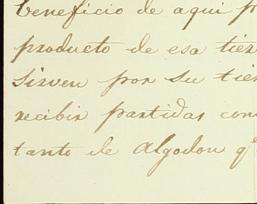 beneficio de aqui p
producto de esa tier
sirven por su tier
recibir partidas con
tanto de Algodon qe